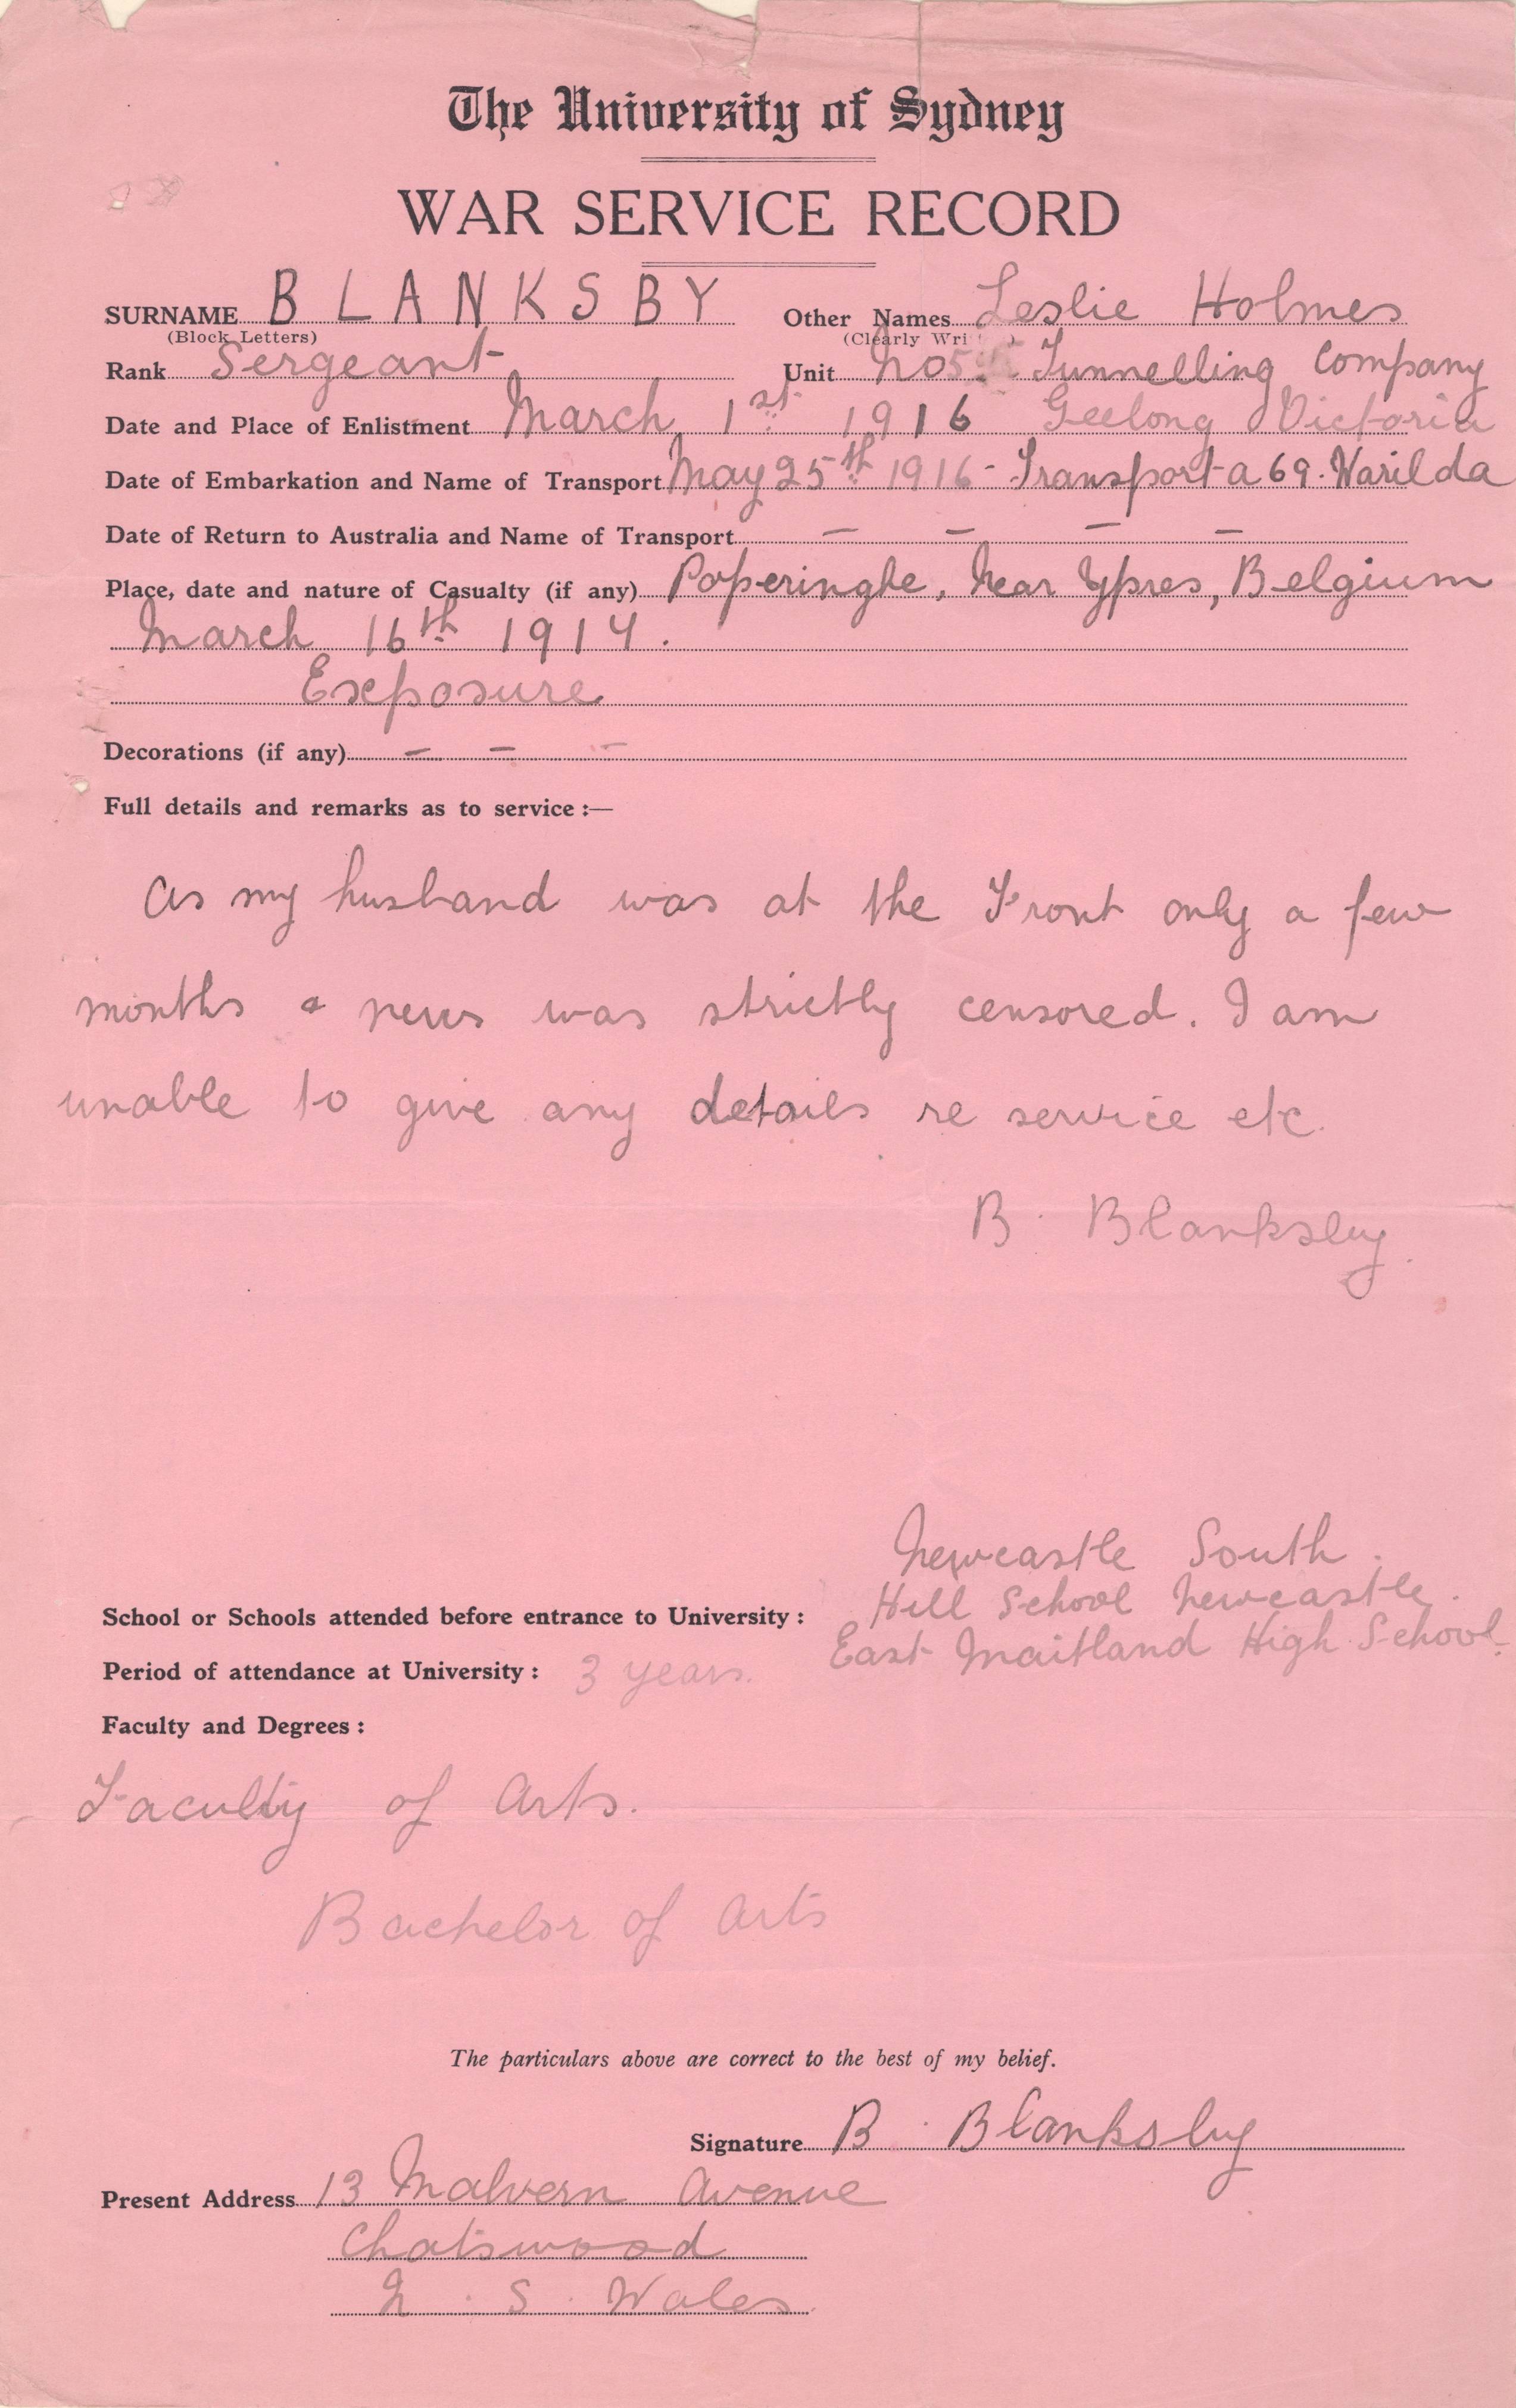 The University of Sydney
WAR SERVICE RECORD
SURNAME BLANKSBY Other Names Leslie Holmes
(Block Letters) (Clearly Wri
Rank Sergeant Unit No 5 Tunnelling Company
Date and Place of Enlistment March 1st 1916 Geelong Victoria
Date of Embarkation and Name of Transport May 25th 1916 - Transport a 69. Warilda
Date of Return to Australia and Name of Transport – – – –
Place, date and nature of Casualty (if any) Poperinghe, Near Ypres, Belgium
March 16th 1917.
Exposure
Decorations (if any) – – –
Full details and remarks as to service :—
As my husband was at the Front only a few
months & news was strictly censored. I am
unable to give any details re service etc.
B. Blanksby.
Newcastle South.
School or Schools attended before entrance to University : Hill School Newcastle.
East Maitland High School.
Period of attendance at University : 3 years.
Faculty and Degrees :
Faculty of Arts.
Bachelor of Arts
The particulars above are correct to the best of my belief.
Signature B. Blanksby
Present Address 13 Malvern Avenue
Chatswood
N. S. Wales.